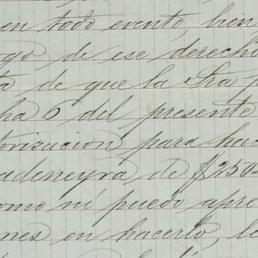 en todo evento, bien
go de ese derecho
de que la Sra
ha 6 del presente
orisacion para hac
adeneyra de $250
omo ni puedo apre
nes en hacerlo, le